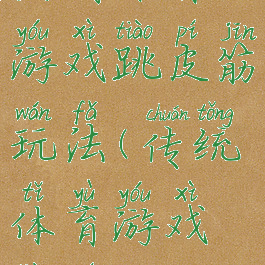 yóu xì tiào pí jīn
游戏跳皮筋
wán fǎ chuán tǒng
玩法(传统
tǐ yù yóu xì
体育游戏